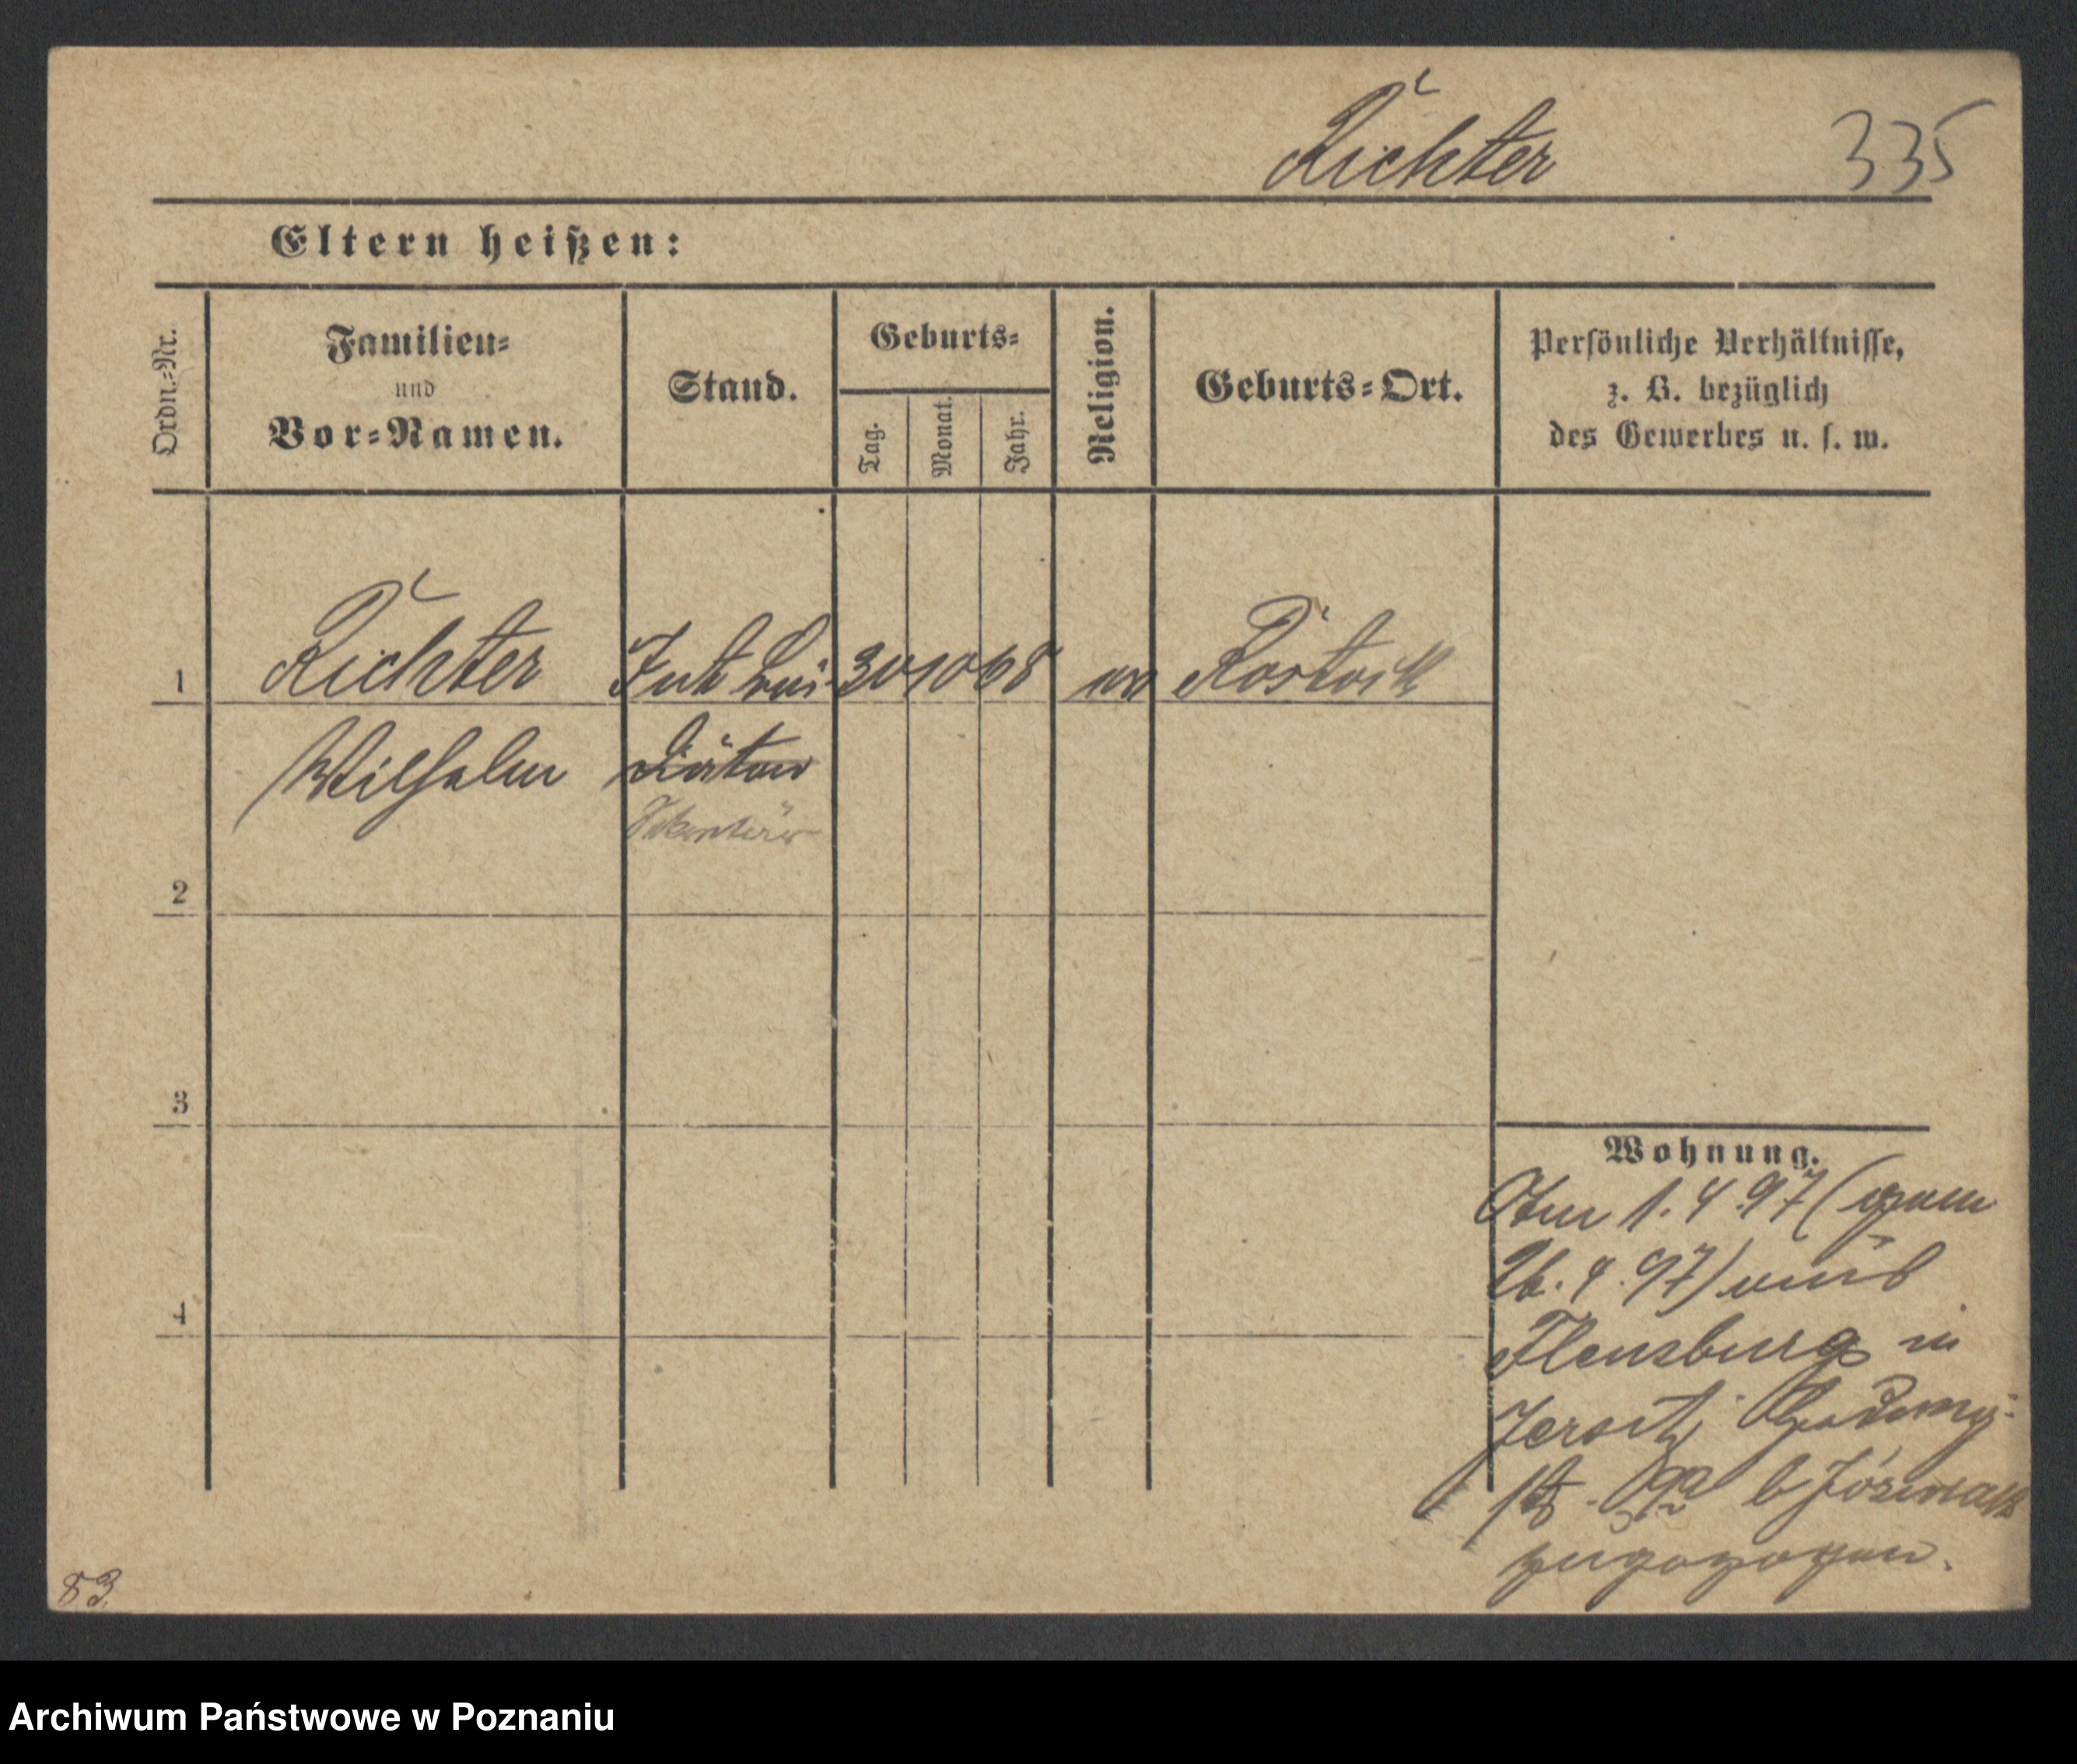 Richter 335
Eltern heißen:
Ordn.-Nr.
Familien- und Vor-Namen.
Stand.
Geburts-
Tag.
Monat.
Jahr.
Religion.
Geburts-Ort.
Persönliche Verhältnisse,
z. B. bezüglich
des Gewerbes u. s. w.
1 Richter 30 10 68 ev Rostock
Wilhelm Diätar
Sekretär
2
3
4
Wohnung.
Am 1. 4. 97 (gem
26. 4. 97) aus
Flensburg in
Jersitz
str. 9a b Jóswiak
zugezogen.
83.
Archiwum Państwowe w Poznaniu